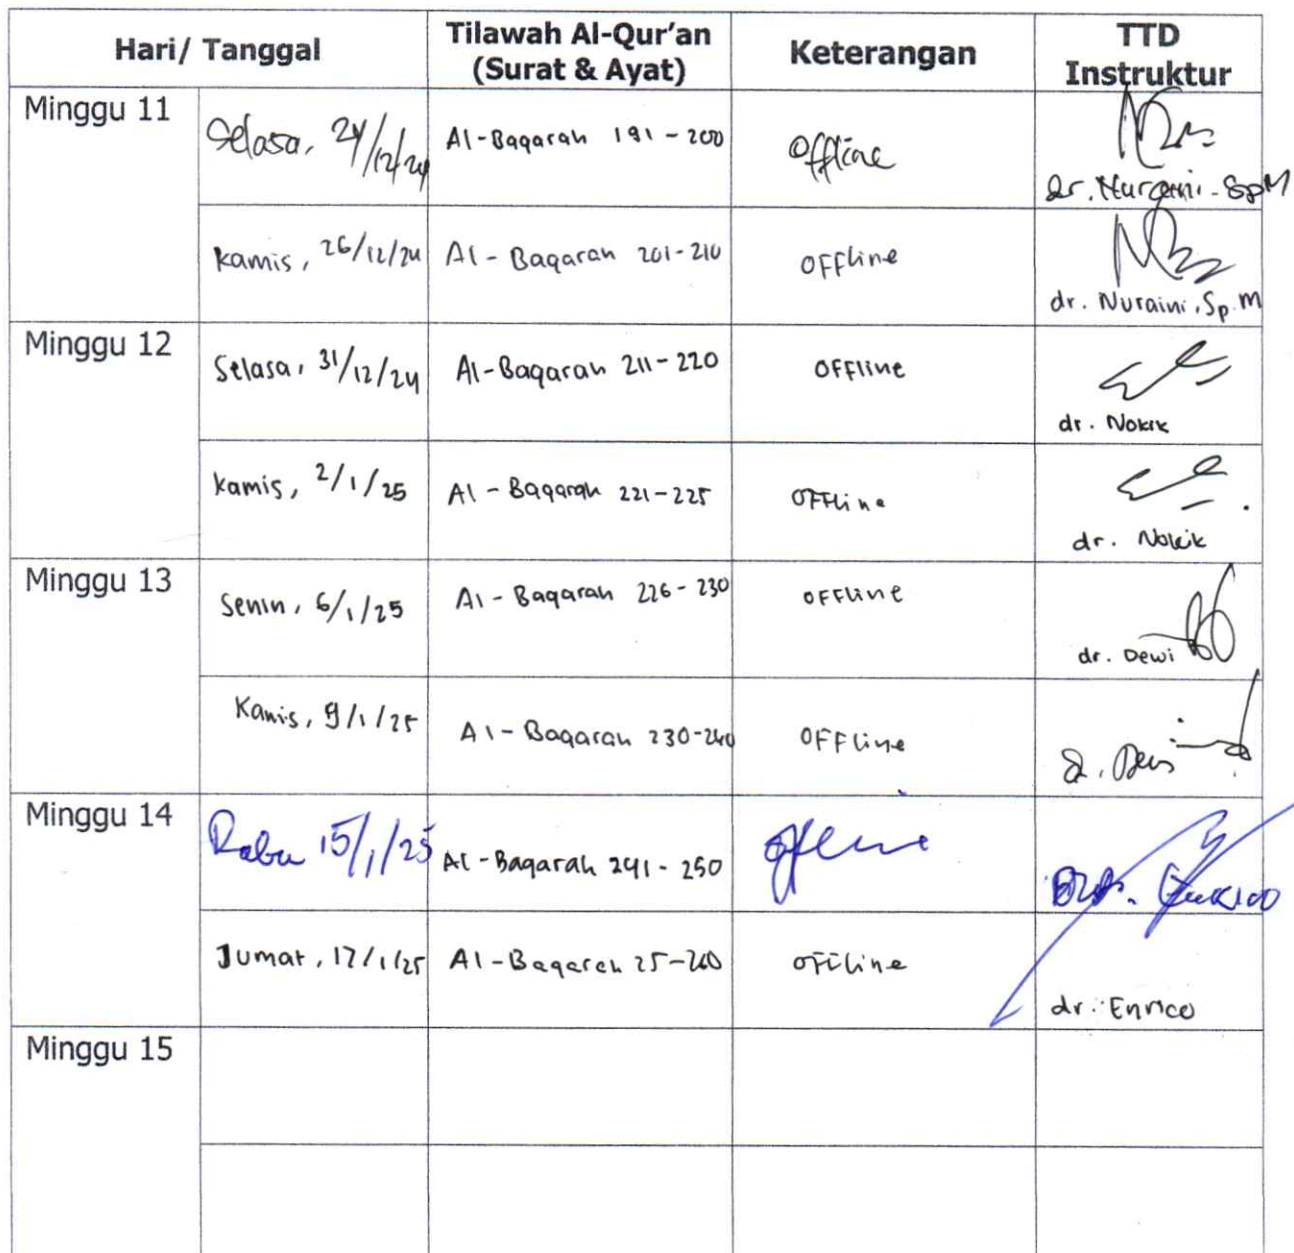 Hari/ Tanggal
Tilawah Al-Qur'an
(Surat & Ayat)
Keterangan
TTD
Instruktur
Minggu 11
Selasa, 24/12/24
Al-Baqarah 191-200
Offline
dr. Nuraini. SpM
Kamis, 26/12/24
Al-Baqarah 201-210
OFFline
dr. Nuraini, Sp.M
Minggu 12
Selasa, 31/12/24
Al-Baqarah 211-220
OFFline
dr. Nokik
Kamis, 2/1/25
Al-Baqarah 221-225
OFFline
dr. Nokik
Minggu 13
Senin, 6/1/25
Al-Baqarah 226-230
OFFline
dr. Dewi
Kamis, 9/1/25
Al-Baqarah 230-240
OFFline
Minggu 14
Rabu 15/1/25
Al-Baqarah 241-250
offline
Jumat, 17/1/25
Al-Baqarah 25-260
offline
dr. Enrico
Minggu 15